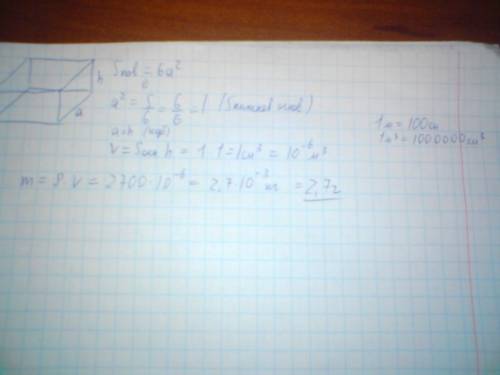 h
a
Sпов = 6a²
a² = S/6 = 6/6 = 1
a=h (куб)
V = Sосн h = 1 · 1 = 1 см³ = 10⁻⁶ м³
m = ρ V = 2700 · 10⁻⁶ = 2,7 · 10⁻³ кг = 2,7 г
1 м = 100 см
1 м³ = 1000000 см³